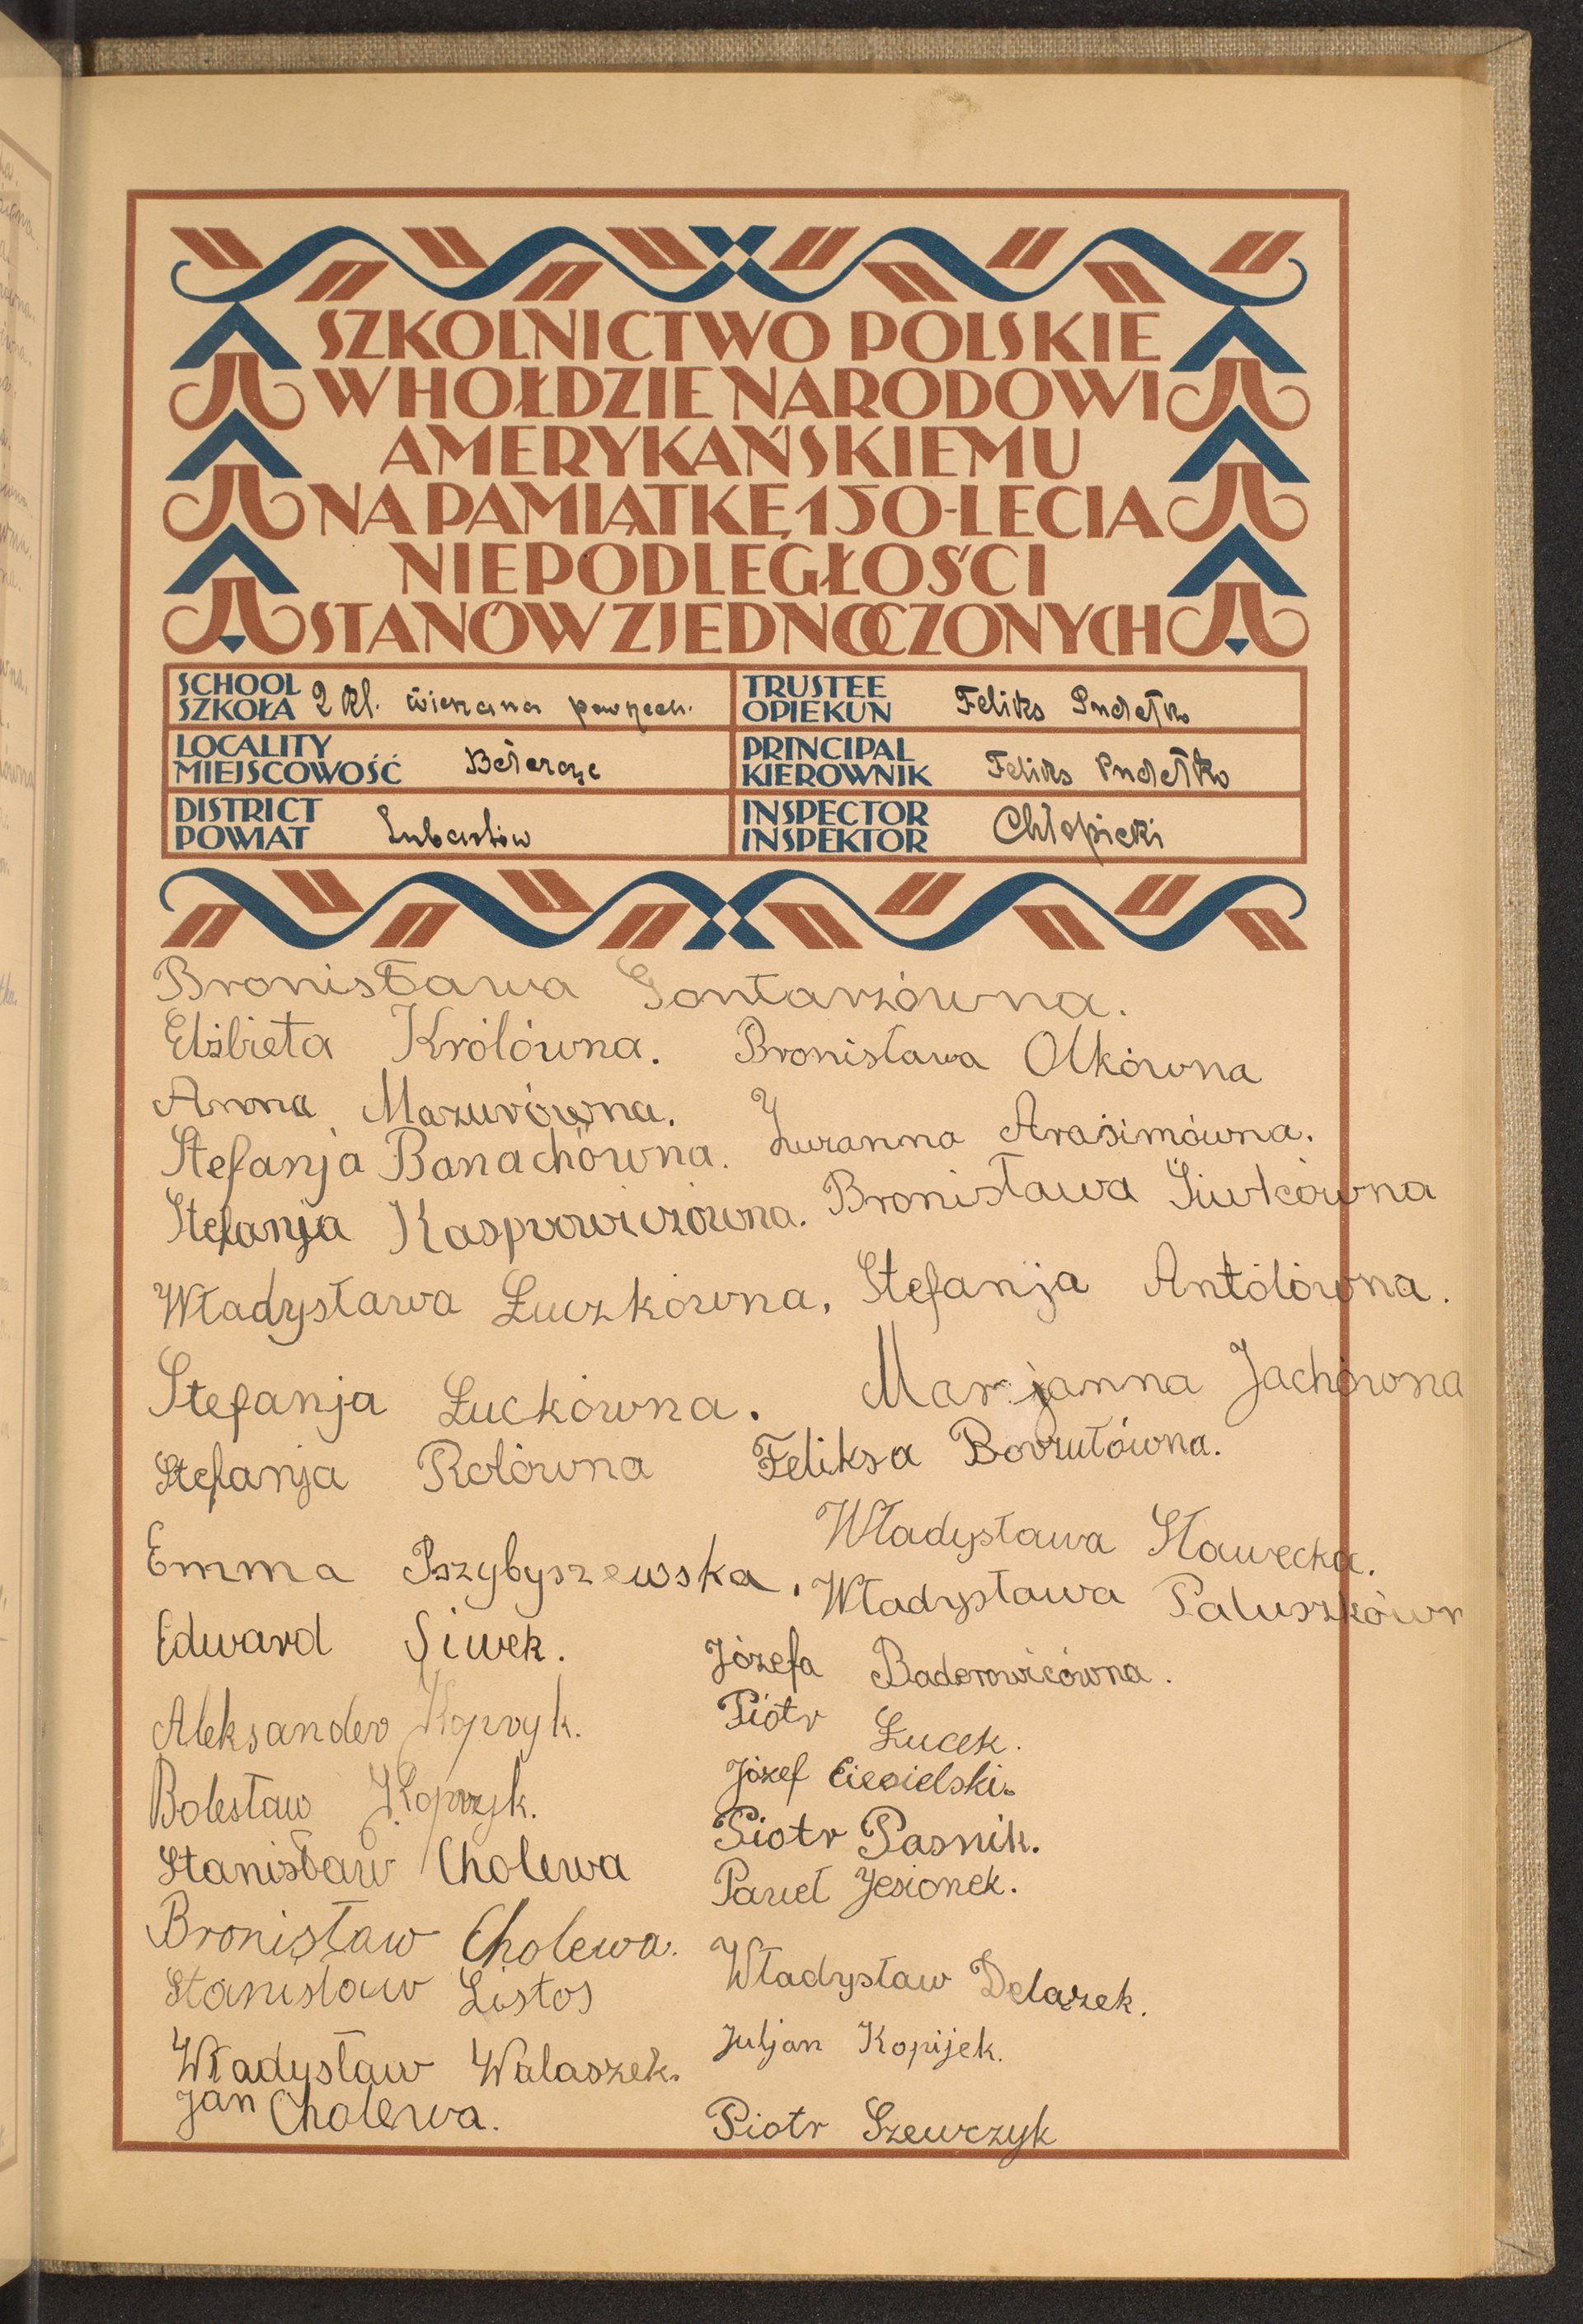 SZKOLNICTWO POLSKIE
W HOŁDZIE NARODOWI
AMERYKAŃSKIEMU
NA PAMIĄTKĘ 150-LECIA
NIEPODLEGŁOŚCI
STANÓW ZJEDNOCZONYCH
SCHOOL
SZKOŁA 2 kl. powszech.
TRUSTEE
OPIEKUN Feliks Pudełko
LOCALITY
MIEJSCOWOŚĆ
PRINCIPAL
KIEROWNIK Feliks Pudełko
DISTRICT
POWIAT Lubartów
INSPECTOR
INSPEKTOR Chłopicki
Bronisława Gontarzówna.
Elżbieta Królówna. Bronisława Olkówna
Anna Mazurówna.
Zuzanna Arasimówna.
Stefanja Banachówna.
Stefanja Kasprowiczówna. Bronisława Siwkówna
Władysława Łuczkówna, Stefanja Antólówna.
Stefanja Łuckówna. Marjanna Jachówna
Stefanja Rolówna Feliksa Borzułówna.
Władysława Sławecka.
Emma Pszybyszewska, Władysława Paluszkówn
Edward Siwek. Józefa Baderowicówna.
Aleksander Kopryk. Piótr Łucek.
Bolesław Koprzyk. Józef Ciesielski.
Stanisław Cholewa Piotr Pasnik.
Paweł Jesionek.
Bronisław Cholewa.
Stanisław Listos Władysław Delązek.
Władysław Walaszek. Juljan Kopijek.
Jan Cholewa. Piotr Szewczyk